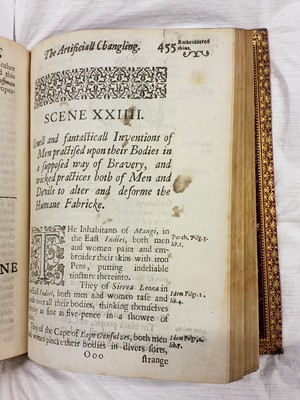 other
this
offman
roper-
NE
The Artificiall Changling.
455
Embroidered
skins.
SCENE XXIIII.
Cruell and fantasticall Inventions of
Men practised upon their Bodies in
a supposed way of Bravery, and
wicked practices both of Men and
Devils to alter and deforme the
Humane Fabricke.
THe Inhabitants of Mangi, in
the East Indies, both men
and women paint and em-
broider their skins with iron
Pens, putting indeliable
tincture thereinto.
Purch. Pilg. 3.
lib. 1.
They of Sierra Leona in
Indies, both men and women rase and
over all their bodies, thinking themselves
as fine as five-pence in a showre of
Idem Pilgr. 2.
lib. 4.
They of the Cape of Lopo Gonsalves, both men
women pincke their bodies in divers sorts,
Idem Pilgr. 2.
lib. 7.
Ooo
strange